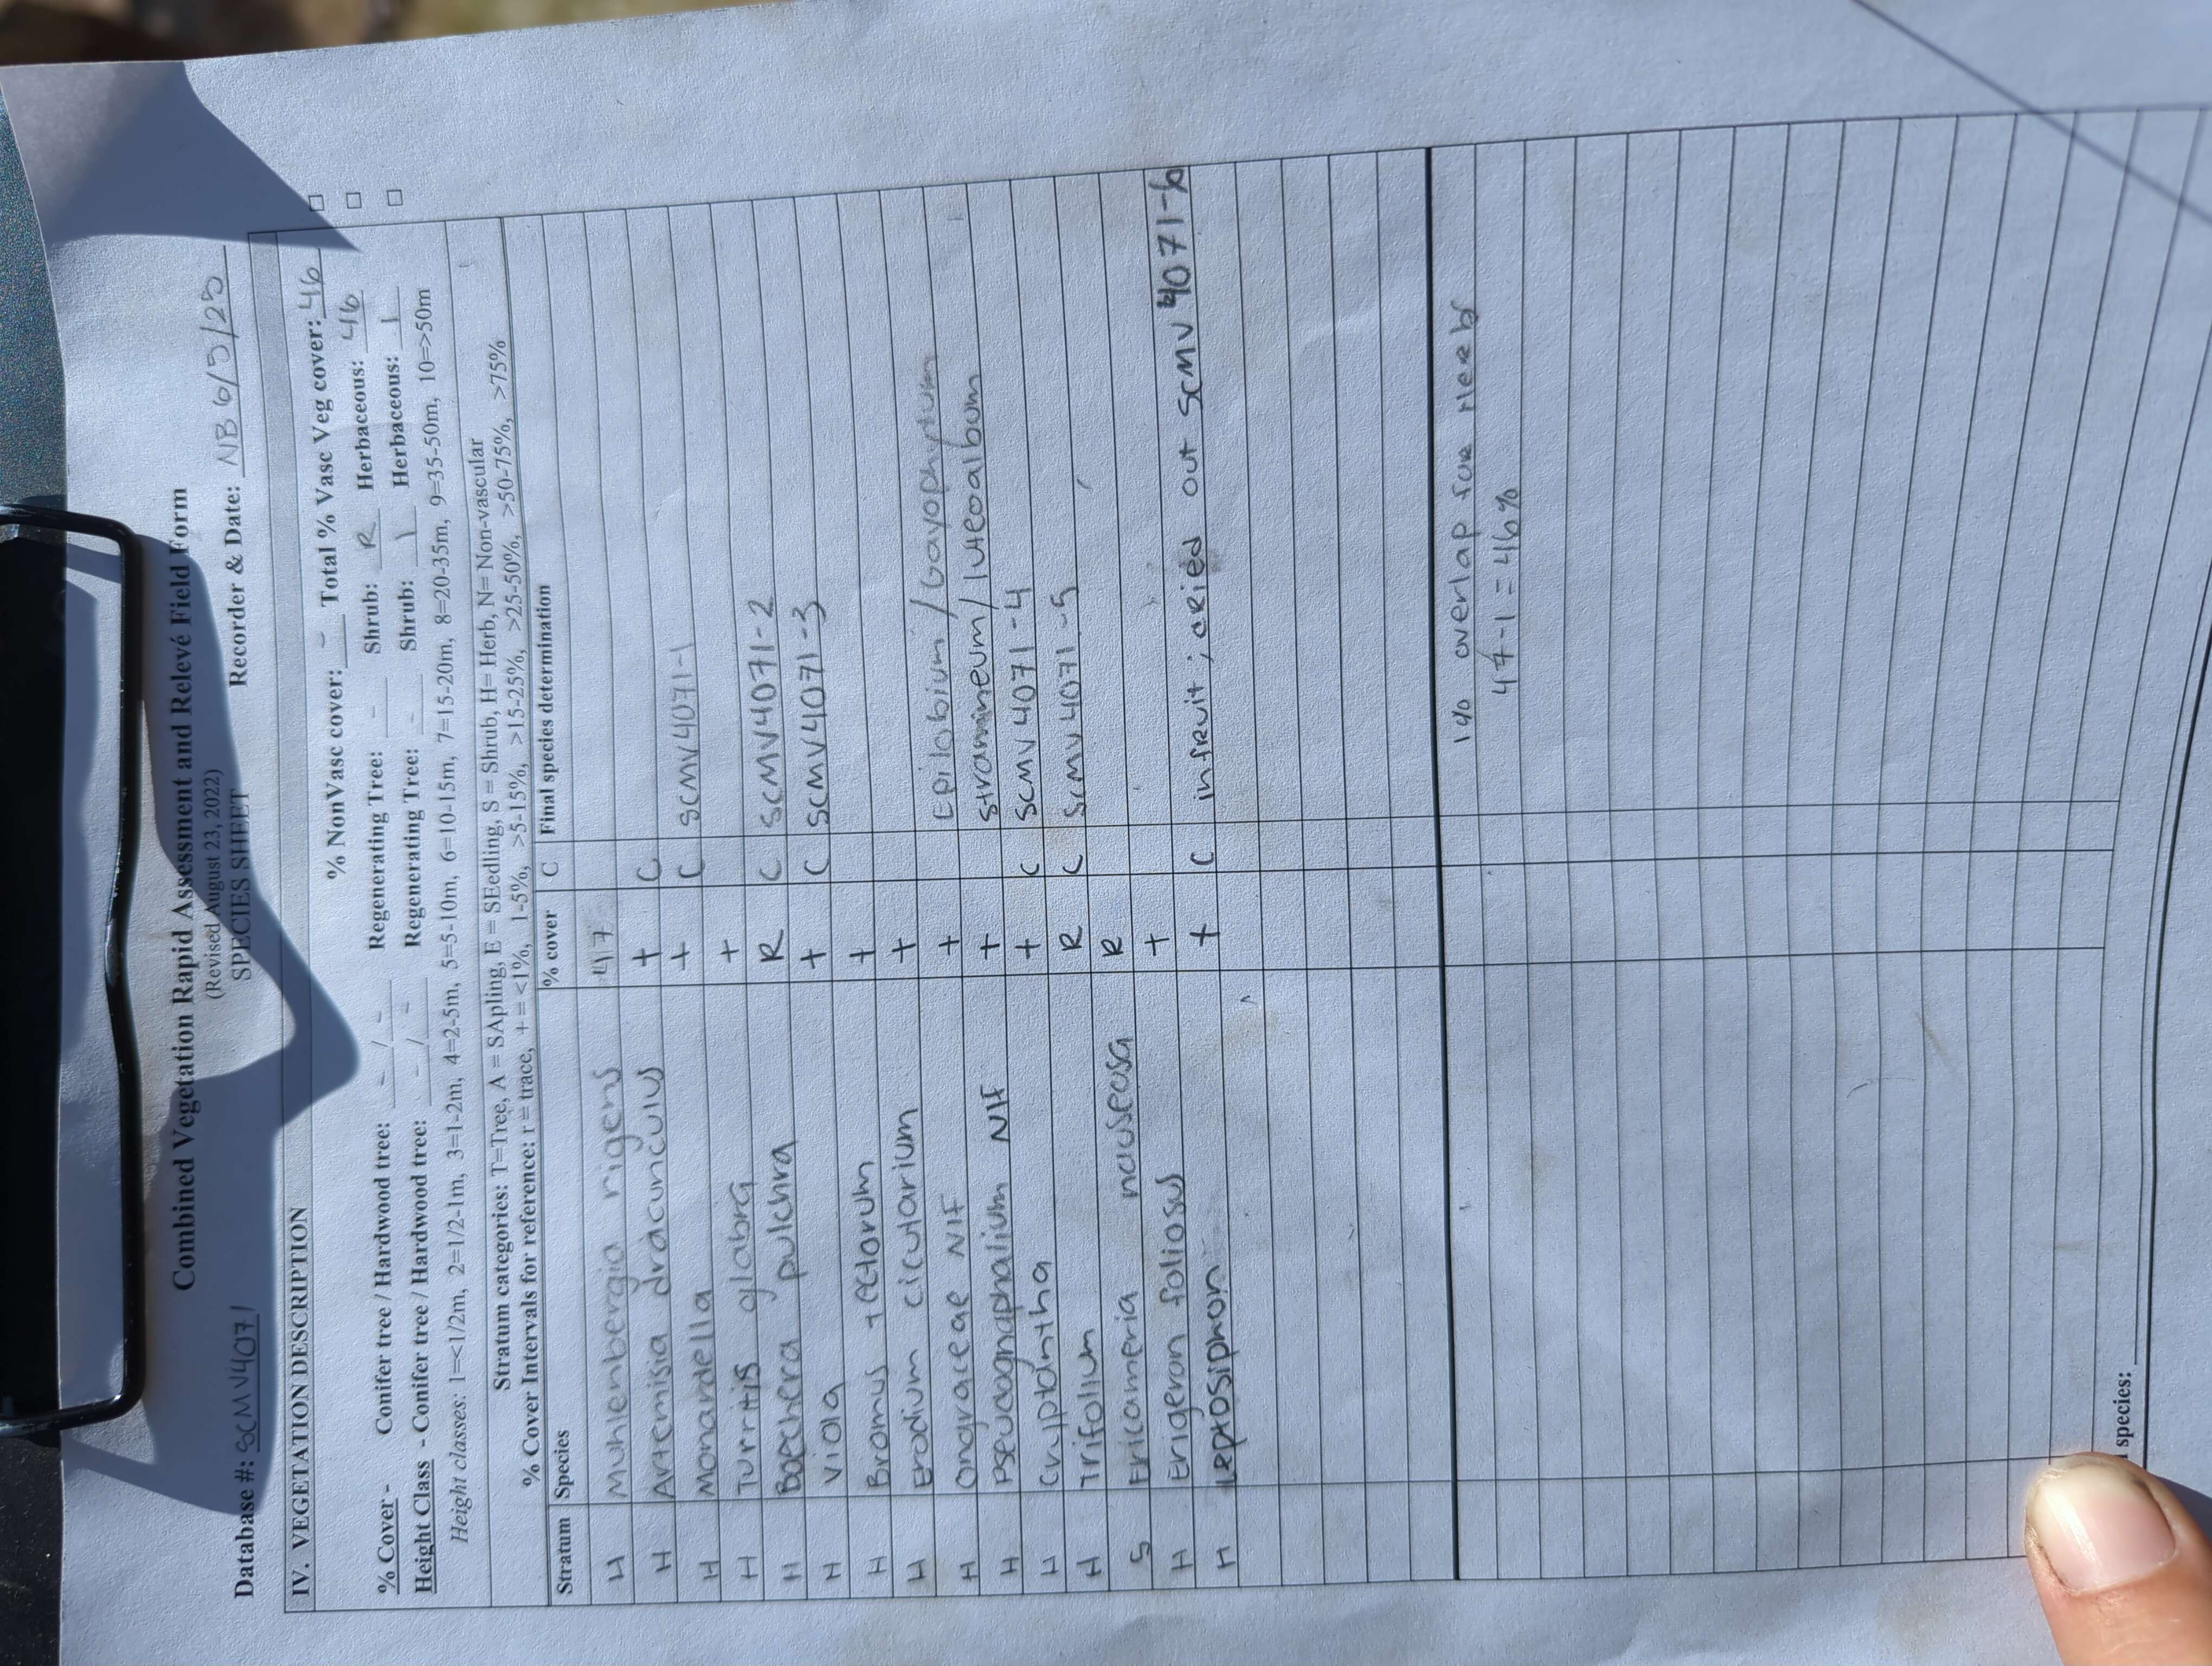 Combined Vegetation Rapid Assessment and Relevé Field Form
(Revised August 23, 2022)
SPECIES SHEET
Database #: SCMV4071 Recorder & Date: NB 6/5/25
IV. VEGETATION DESCRIPTION
% NonVasc cover: - Total % Vasc Veg cover: 46
% Cover - Conifer tree / Hardwood tree: - / - Regenerating Tree: - Shrub: R Herbaceous: 46
Height Class - Conifer tree / Hardwood tree: - / - Regenerating Tree: - Shrub: 1 Herbaceous: 1
Height classes: 1=<1/2m, 2=1/2-1m, 3=1-2m, 4=2-5m, 5=5-10m, 6=10-15m, 7=15-20m, 8=20-35m, 9=35-50m, 10=>50m
Stratum categories: T=Tree, A = SApling, E = SEedling, S = Shrub, H= Herb, N= Non-vascular
% Cover Intervals for reference: r = trace, + = <1%, 1-5%, >5-15%, >15-25%, >25-50%, >50-75%, >75%
Stratum Species % cover C Final species determination
H Muhlenbergia rigens 47
H Artemisia dracunculus + C
H Monardella + C SCMV4071-1
H Turritis glabra +
H Boechera pulchra R C SCMV4071-2
H Viola + C SCMV4071-3
H Bromus tectorum +
H Erodium cicutarium +
H Onagraceae NIF + Epilobium/Gayophytum
H Pseudognaphalium NIF + stramineum/luteoalbum
H Cryptantha + C SCMV4071-4
H Trifolium R C SCMV4071-5
S Ericameria nauseosa R
H Erigeron foliosus +
H Leptosiphon + C in fruit; dried out SCMV4071-6
1% overlap for Herb
47-1=46%
species: